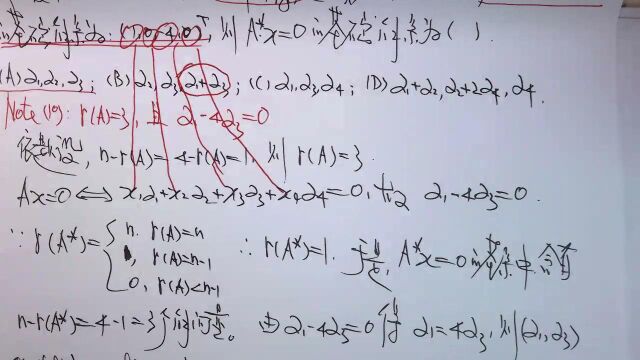 的基础解系为: (1, 0, -4, 0)ᵀ, 则 A*x=0 的基础解系为( ).
(A) α₁, α₂, α₃; (B) α₂, α₃, α₁+α₃; (C) α₁, α₃, α₄; (D) α₁+α₂, α₂+2α₄, α₄.
Note(19): r(A)=3, 且 α₁-4α₃=0
n-r(A)=4-r(A)=1, 则 r(A)=3.
Ax=0 ⟺ x₁α₁+x₂α₂+x₃α₃+x₄α₄=0, 故 α₁-4α₃=0.
∵ r(A*)= { n, r(A)=n
1, r(A)=n-1 ∴ r(A*)=1. 于是, A*x=0 的基础解系中含有
0, r(A)<n-1
n-r(A*)=4-1=3 个解向量。 由 α₁-4α₃=0 得 α₁=4α₃, 则 (α₁, α₃)